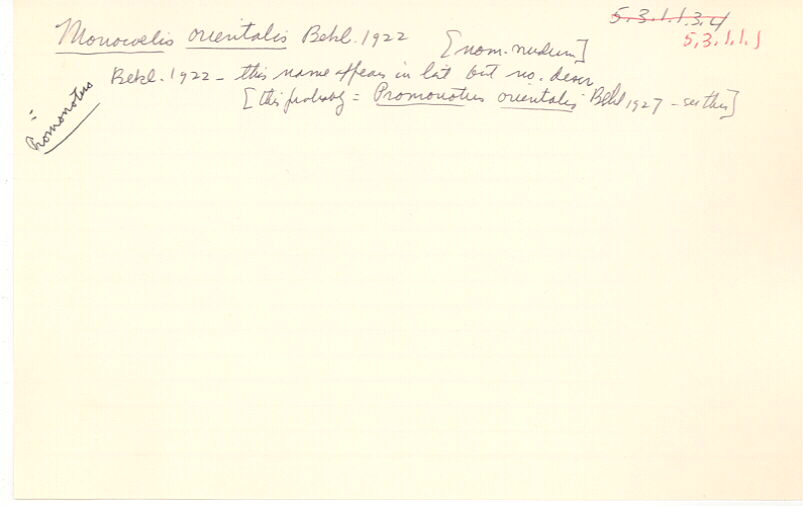 5.3.1.1.3.4
Monocoelis orientalis Bekl. 1922 [nom. nudum]
5.3.1.1.1
Bekl. 1922 - this name appears in lat but no. descr.
[this probably = Promonotus orientalis Bekl 1927 - see this]
= Promonotus